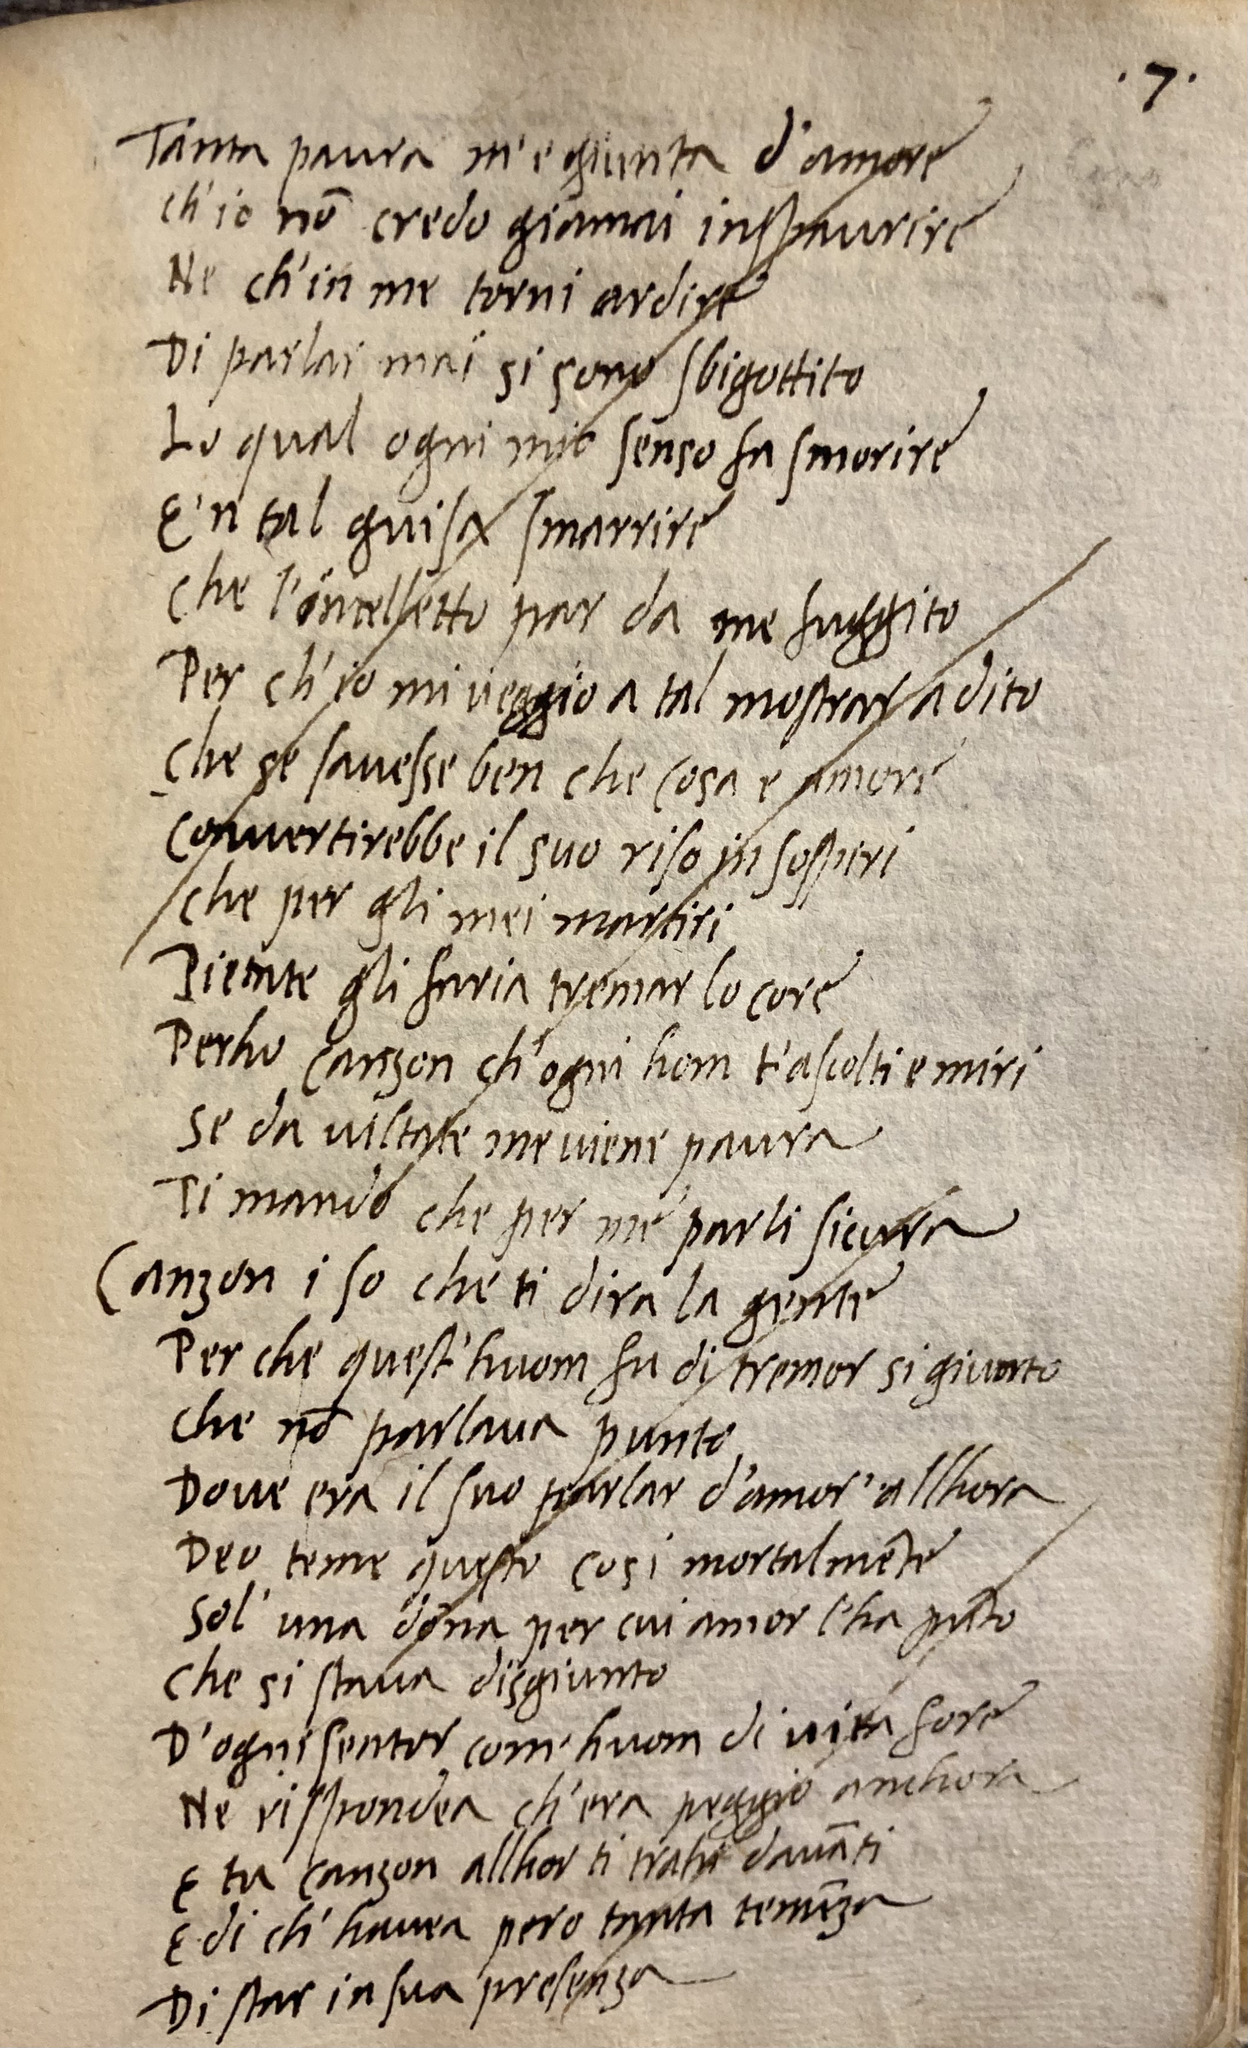 .7.
Tanta paura m'e giunta d'amore
ch'io nō credo giamai inspaurire
Ne ch'in me torni ardire
Di parlar mai si sono sbigottito
Lo qual ogni mio senso fa smorire
E'n tal guisa smarrire
Che l'intelletto par da me fuggito
Per ch'io mi ueggio a tal mostrar a dito
Che se sauesse ben che cosa e amore
Conuertirebbe il suo riso in sospiri
Che per gli mei martiri
Pietate gli faria tremar lo core
Perho canzon ch'ogni hom t'ascolti e miri
Se da uiltate me uiene paura
Ti mando che per me parli sicura
Canzon i so che ti dira la gente
Per che quest'huom fu di tremor si giunto
Che nō parlaua punto
Doue era il suo parlar d'amor' allhora
Deo teme questo cosi mortalmēte
Sol' una dōna per cui amor l'ha pūto
Che si staua disgiunto
D'ogni sentor com' huom di uita fore
Ne rispondea ch'era peggio anchora
E tu canzon allhor ti trahi dauāti
E di ch' hauea pero tanta temēza
Di star in sua presenza